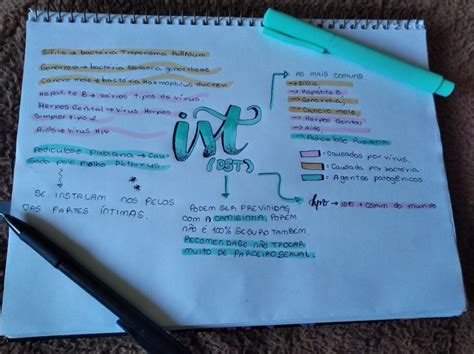 Sífilis → bactéria Treponema Pallidum
Gonorreia → bactéria Neisseria gonorrhoeae
Cancro mole → bactéria Haemophilus ducreyi
Hepatite B → Vários tipos de vírus.
Herpes Genital → Vírus Herpes
Simples tipo 2
Aids → Vírus HIV
Pediculose Pubiana → Cau-
sado pelo Piolho Phthirus
SE INSTALAM NOS PELOS
DAS PARTES ÍNTIMAS.
ist
(DST)
PODEM SER PREVINIDAS
COM A CAMISINHA, PORÉM
NÃO É 100% SEGURO TAMBÉM.
RECOMENDASE NÃO TROCAR
MUITO DE PARCEIRO SEXUAL.
AS MAIS COMUNS
→ Sífilis
→ Hepatite B.
→ Gonorreia,
→ Cancro mole,
→ Herpes Genital
→ Aids.
→ Pediculose Pubiana
- Causadas por vírus.
- Causada por bactéria.
- Agentes patogênicos.
→ IST + comum do mundo